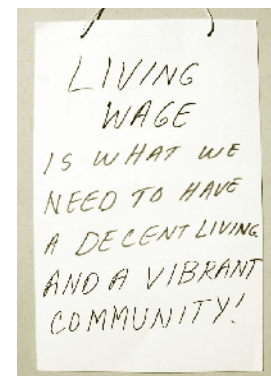 LIVING
WAGE
IS WHAT WE
NEED TO HAVE
A DECENT LIVING
AND A VIBRANT
COMMUNITY!